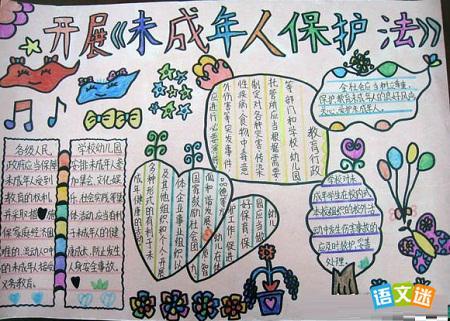 开展《未成年人保护法》
全社会应当树立尊重、
保护、教育未成年人的良好风尚
关心、爱护未成年人。
教育行政
等部门和学校、幼儿园
托管所应当根据需要
制定对各种灾害、传染
性疾病、食物中毒、意
外伤害等突发事件
各级人民
政府应当保障
未成年人受到
教育的权利,
并采取措施保
障家庭经济困
难的、流动人口中
的未成年人接受
义务教育。
学校幼儿园
安排未成年人参
加集会、文化娱
乐、社会实践等集
体活动应当有
利于未成年人
健康成长,防止发生
人身安全事故。
国家鼓励社会团
体、企业事业组织以
及其他组织和个人,开展
多种形式的有利于未
成年健康的活动
学校对未
成年学生在校内或
本校组织的校外活
动中发生伤害事故
的应及时救护,妥善
处理。
语文迷